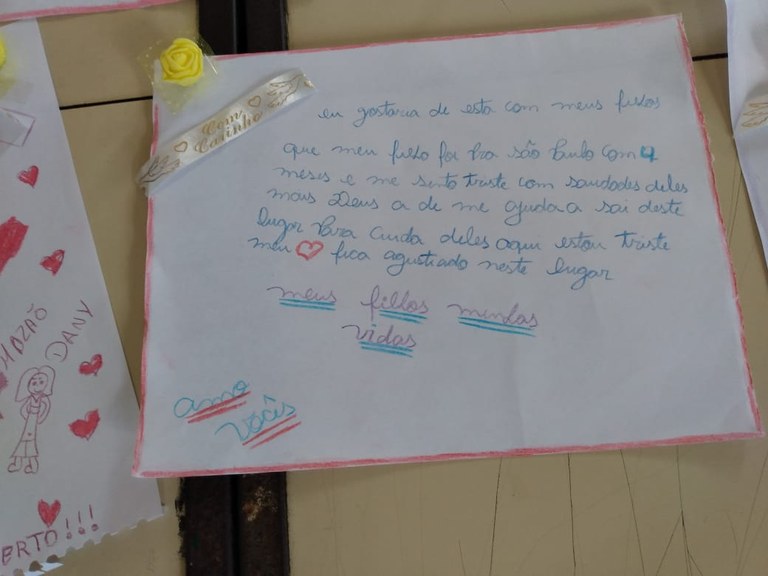 Com
Carinho
eu gostaria de esta com meus filhos
que meu filho foi Pra são Paulo com 4
meses e me sinto triste com saudades deles
mais Deus a de me ajuda a sai deste
lugar Para Cuida deles aqui estou triste
meu ♡ fica agustiado neste lugar
meus filhos minhas
vidas
amo
vocês
DANY
ERTO!!!